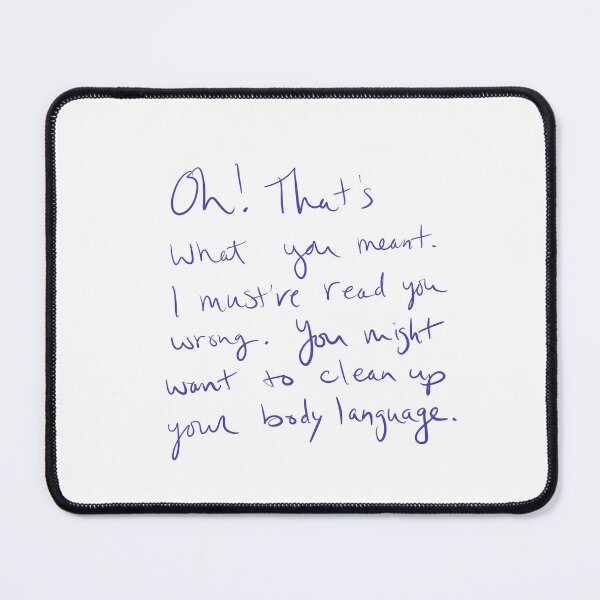 Oh! That's
what you meant.
I must've read you
wrong. You might
want to clean up
your body language.